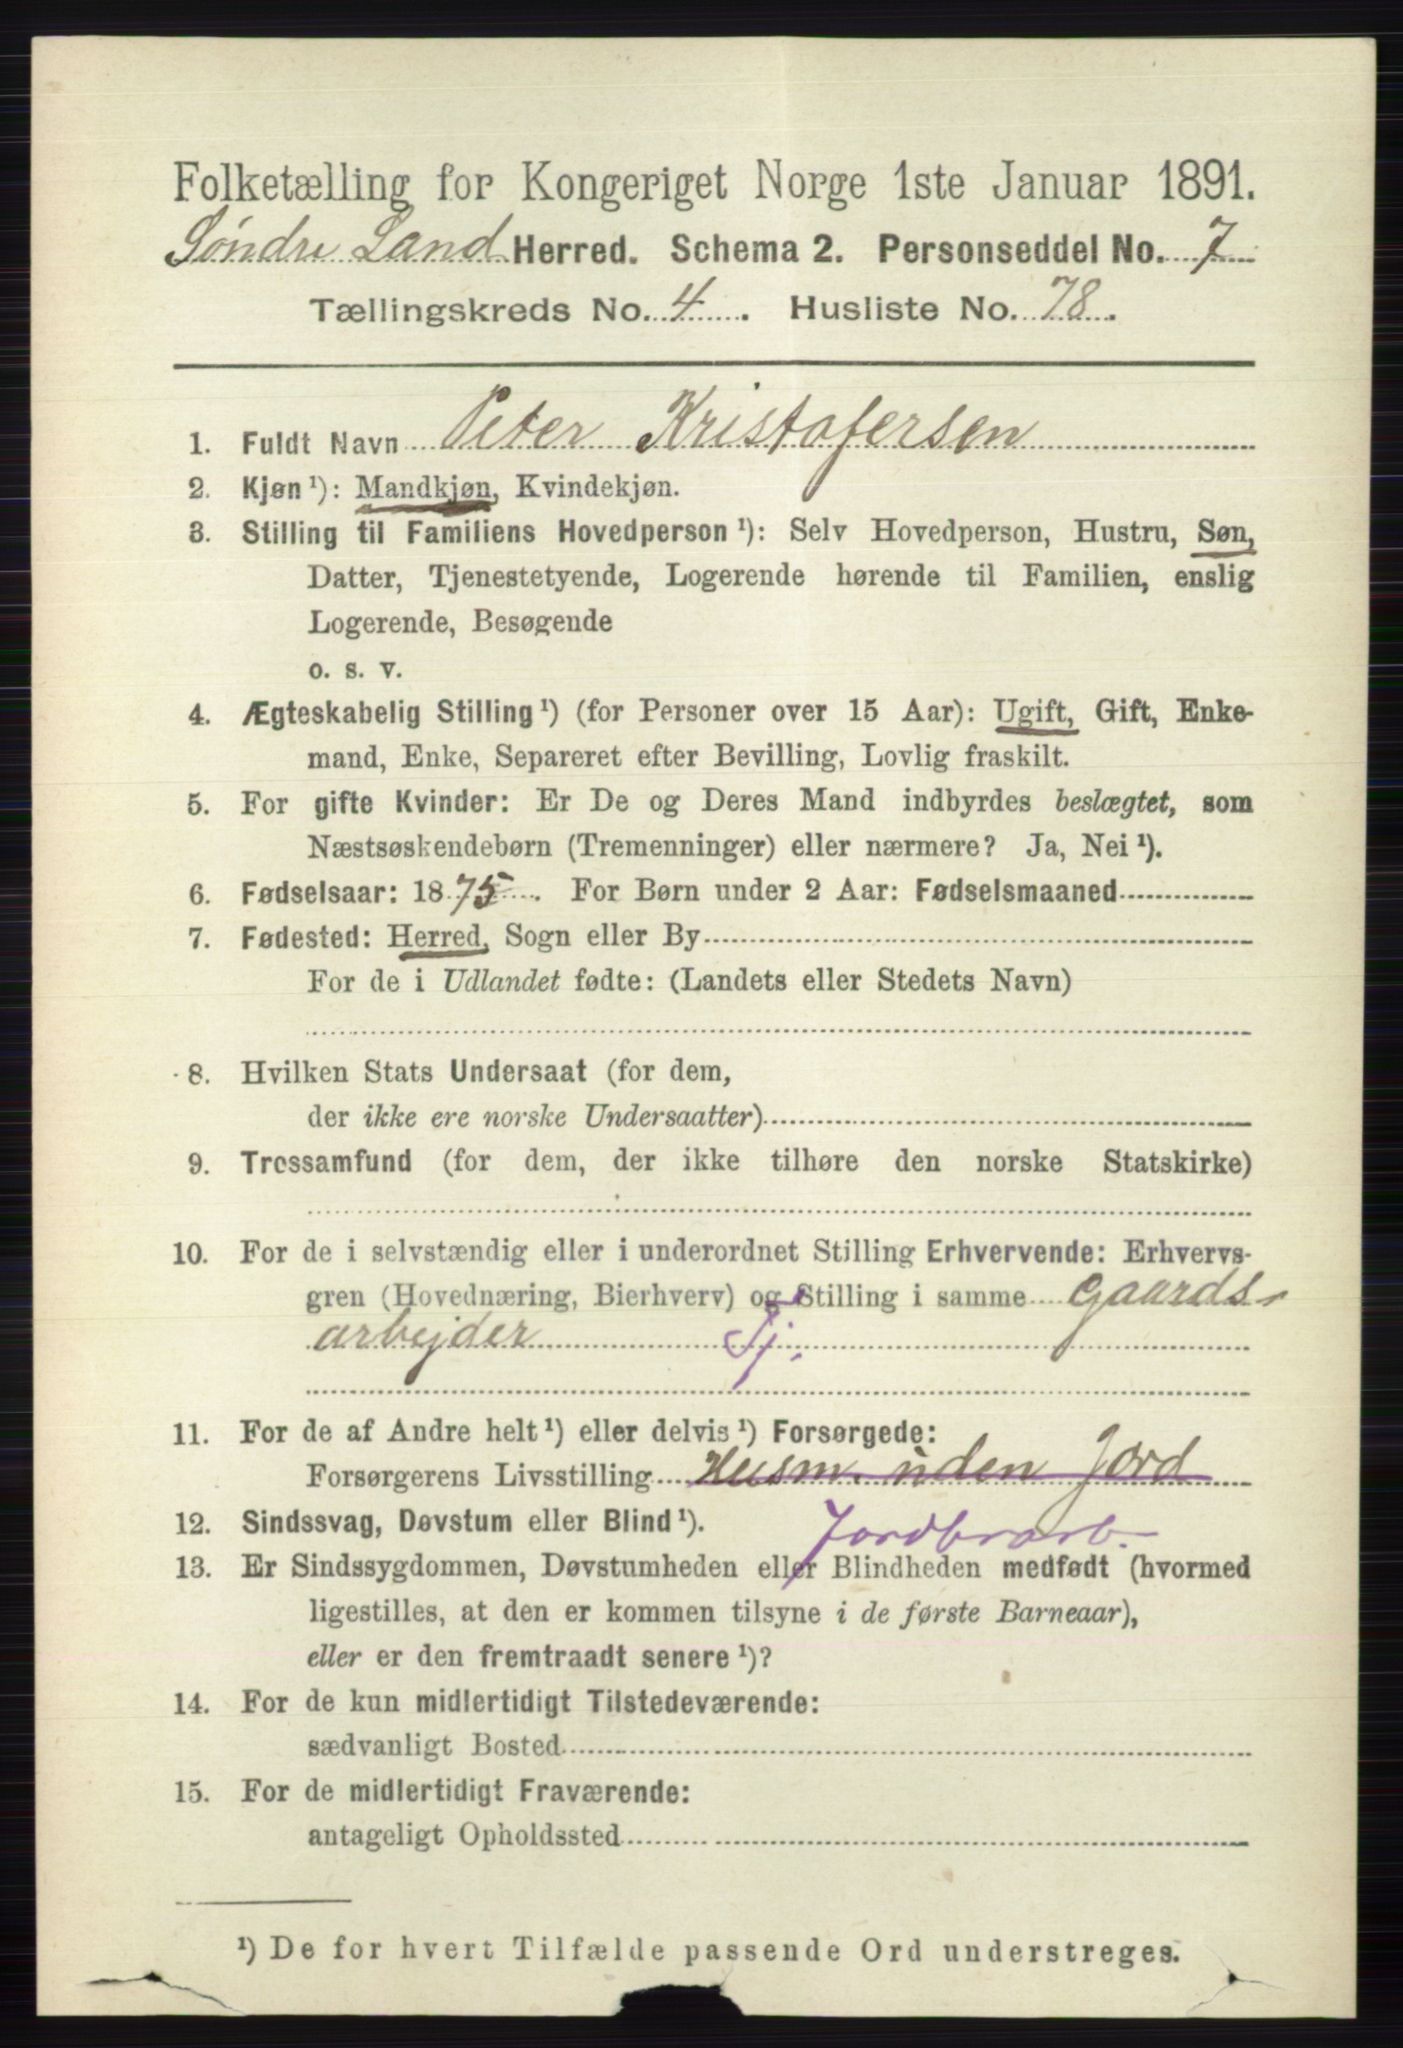 Folketælling for Kongeriget Norge 1ste Januar 1891.
Søndre Land Herred. Schema 2. Personseddel No. 7
Tællingskreds No. 4. Husliste No. 78.
1. Fuldt Navn Peter Kristofersen
2. Kjøn ¹): Mandkjøn, Kvindekjøn.
3. Stilling til Familiens Hovedperson ¹): Selv Hovedperson, Hustru, Søn,
Datter, Tjenestetyende, Logerende hørende til Familien, enslig
Logerende, Besøgende
o. s. v.
4. Ægteskabelig Stilling ¹) (for Personer over 15 Aar): Ugift, Gift, Enke-
mand, Enke, Separeret efter Bevilling, Lovlig fraskilt.
5. For gifte Kvinder: Er De og Deres Mand indbyrdes beslægtet, som
Næstsøskendebørn (Tremenninger) eller nærmere? Ja, Nei ¹).
6. Fødselsaar: 1875. For Børn under 2 Aar: Fødselsmaaned
7. Fødested: Herred, Sogn eller By
For de i Udlandet fødte: (Landets eller Stedets Navn)
8. Hvilken Stats Undersaat (for dem,
der ikke ere norske Undersaatter)
9. Trossamfund (for dem, der ikke tilhøre den norske Statskirke)
10. For de i selvstændig eller i underordnet Stilling Erhvervende: Erhvervs-
gren (Hovednæring, Bierhverv) og Stilling i samme Gaards-
arbejder Tj.
11. For de af Andre helt ¹) eller delvis ¹) Forsørgede:
Forsørgerens Livsstilling Husm. uden Jord
12. Sindssvag, Døvstum eller Blind ¹). Jordbrarb.
13. Er Sindssygdommen, Døvstumheden eller Blindheden medfødt (hvormed
ligestilles, at den er kommen tilsyne i de første Barneaar),
eller er den fremtraadt senere ¹)?
14. For de kun midlertidigt Tilstedeværende:
sædvanligt Bosted
15. For de midlertidigt Fraværende:
antageligt Opholdssted
¹) De for hvert Tilfælde passende Ord understreges.